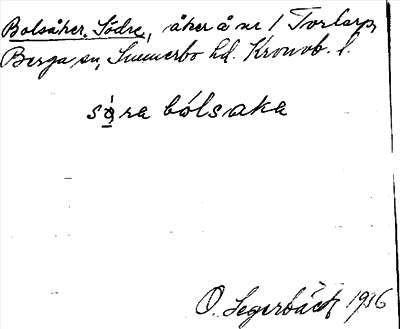 Bolsåker, Södre, åker å nr 1 Torlarp,
Berga sn, Sunnerbo hd. Kronob. l.
sö̀ra bólsaka
O. Segerbäck 1936